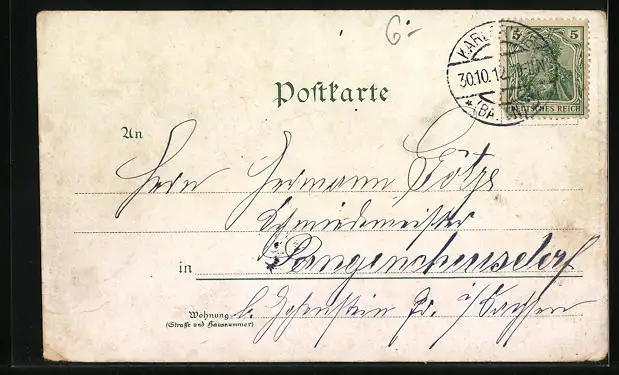 6-
KARLSRUHE
30.10.12
(BADEN)
5
DEUTSCHES REICH
Postkarte
An
Herrn Hermann Götze
Schmiedemeister
in Langenchursdorf
Wohnung
(Strasse und Hausnummer)
b. Hohenstein Er. i/Sachsen